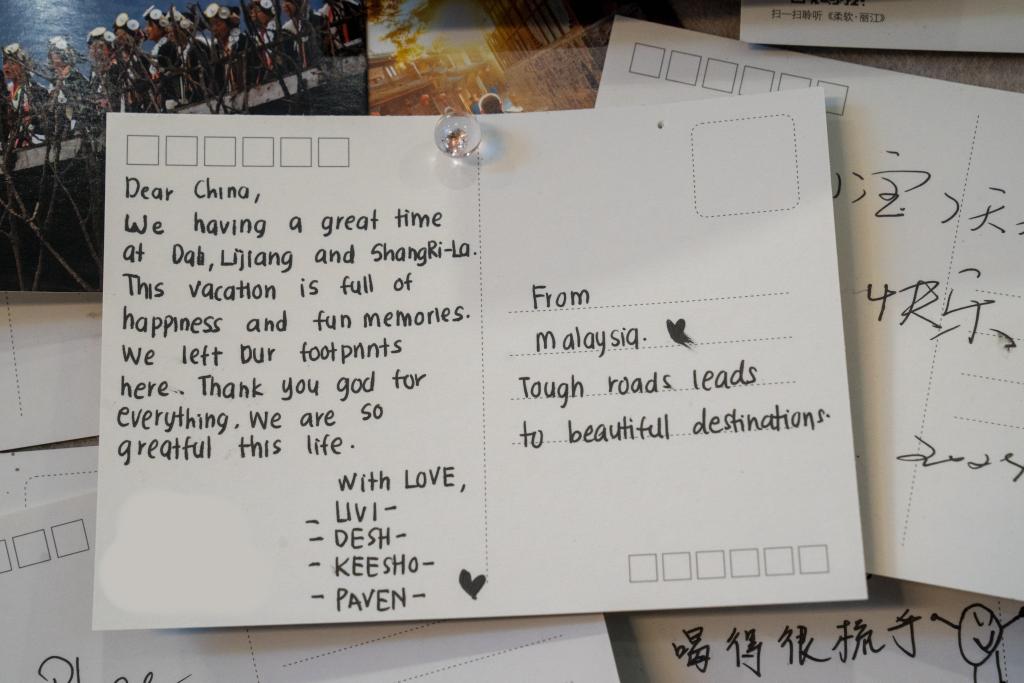 扫一扫聆听《柔软·丽江》
Dear China,
We having a great time
at Dali, Lijiang and ShangRi-La.
This vacation is full of
happiness and fun memories.
We left our footprints
here. Thank you god for
everything. We are so
greatful this life.
With LOVE,
- LIVI -
- DESH -
- KEESHO -
- PAVEN -
From
malaysia.
Tough roads leads
to beautiful destinations.
天
快乐
喝得很梳手